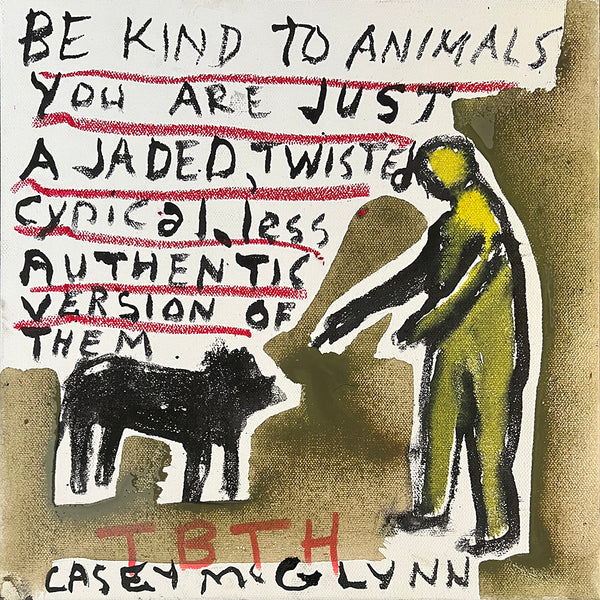 BE KIND TO ANIMALS
YOU ARE JUST
A JADED, TWISTED
CYNICAL, less
AUTHENTIC
VERSION OF
THEM
TBTH
CASEY McGLYNN